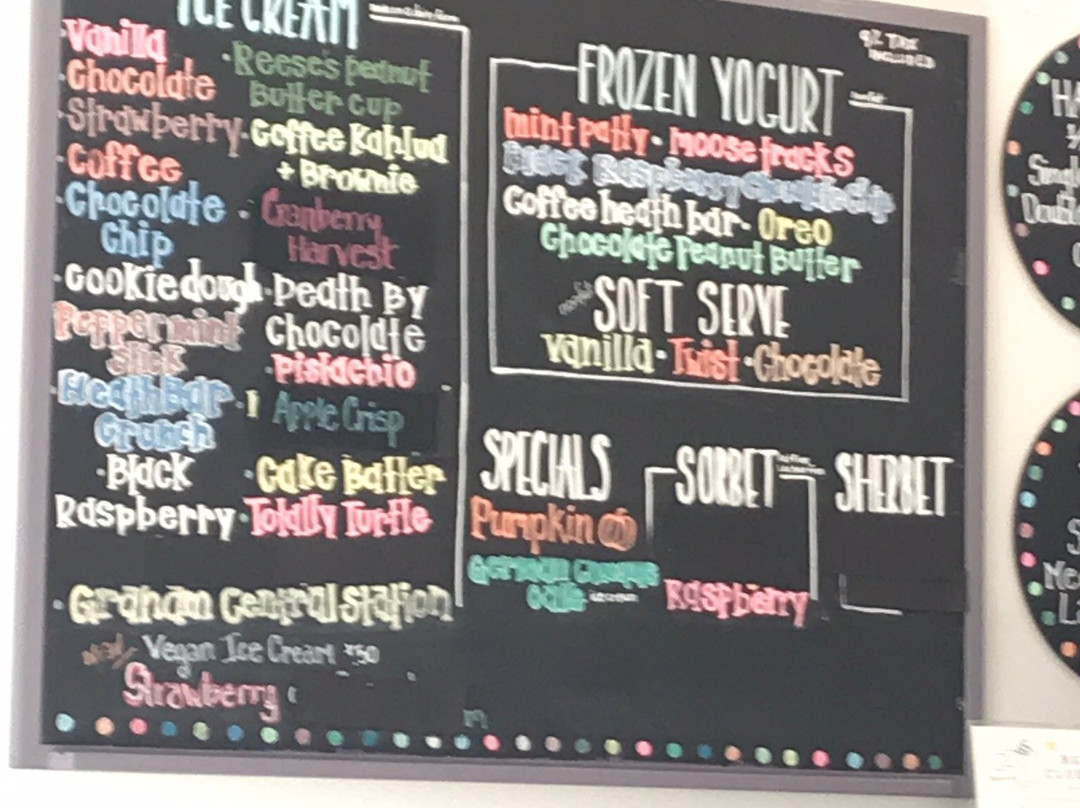 ICE CREAM
Vanilla
Chocolate
Strawberry
Coffee
Chocolate
Chip
Cookie dough
Peppermint
Stick
Heath Bar
Crunch
Black
Raspberry
Reese's peanut
Butter cup
Coffee Kahlua
+ Brownie
Cranberry
Harvest
Death By
Chocolate
Pistachio
Apple Crisp
Cake Batter
Totally Turtle
Graham Central Station
Vegan Ice Cream
Strawberry
9% TAX
INCLUDED
FROZEN YOGURT
mint patty · moose tracks
Black Raspberry Chocolate Chip
Coffee heath bar · Oreo
Chocolate Peanut Butter
nonfat
SOFT SERVE
Vanilla · Twist · Chocolate
SPECIALS
Pumpkin
Cake
SORBET
Raspberry
SHERBET
HA
Singl
Doubl